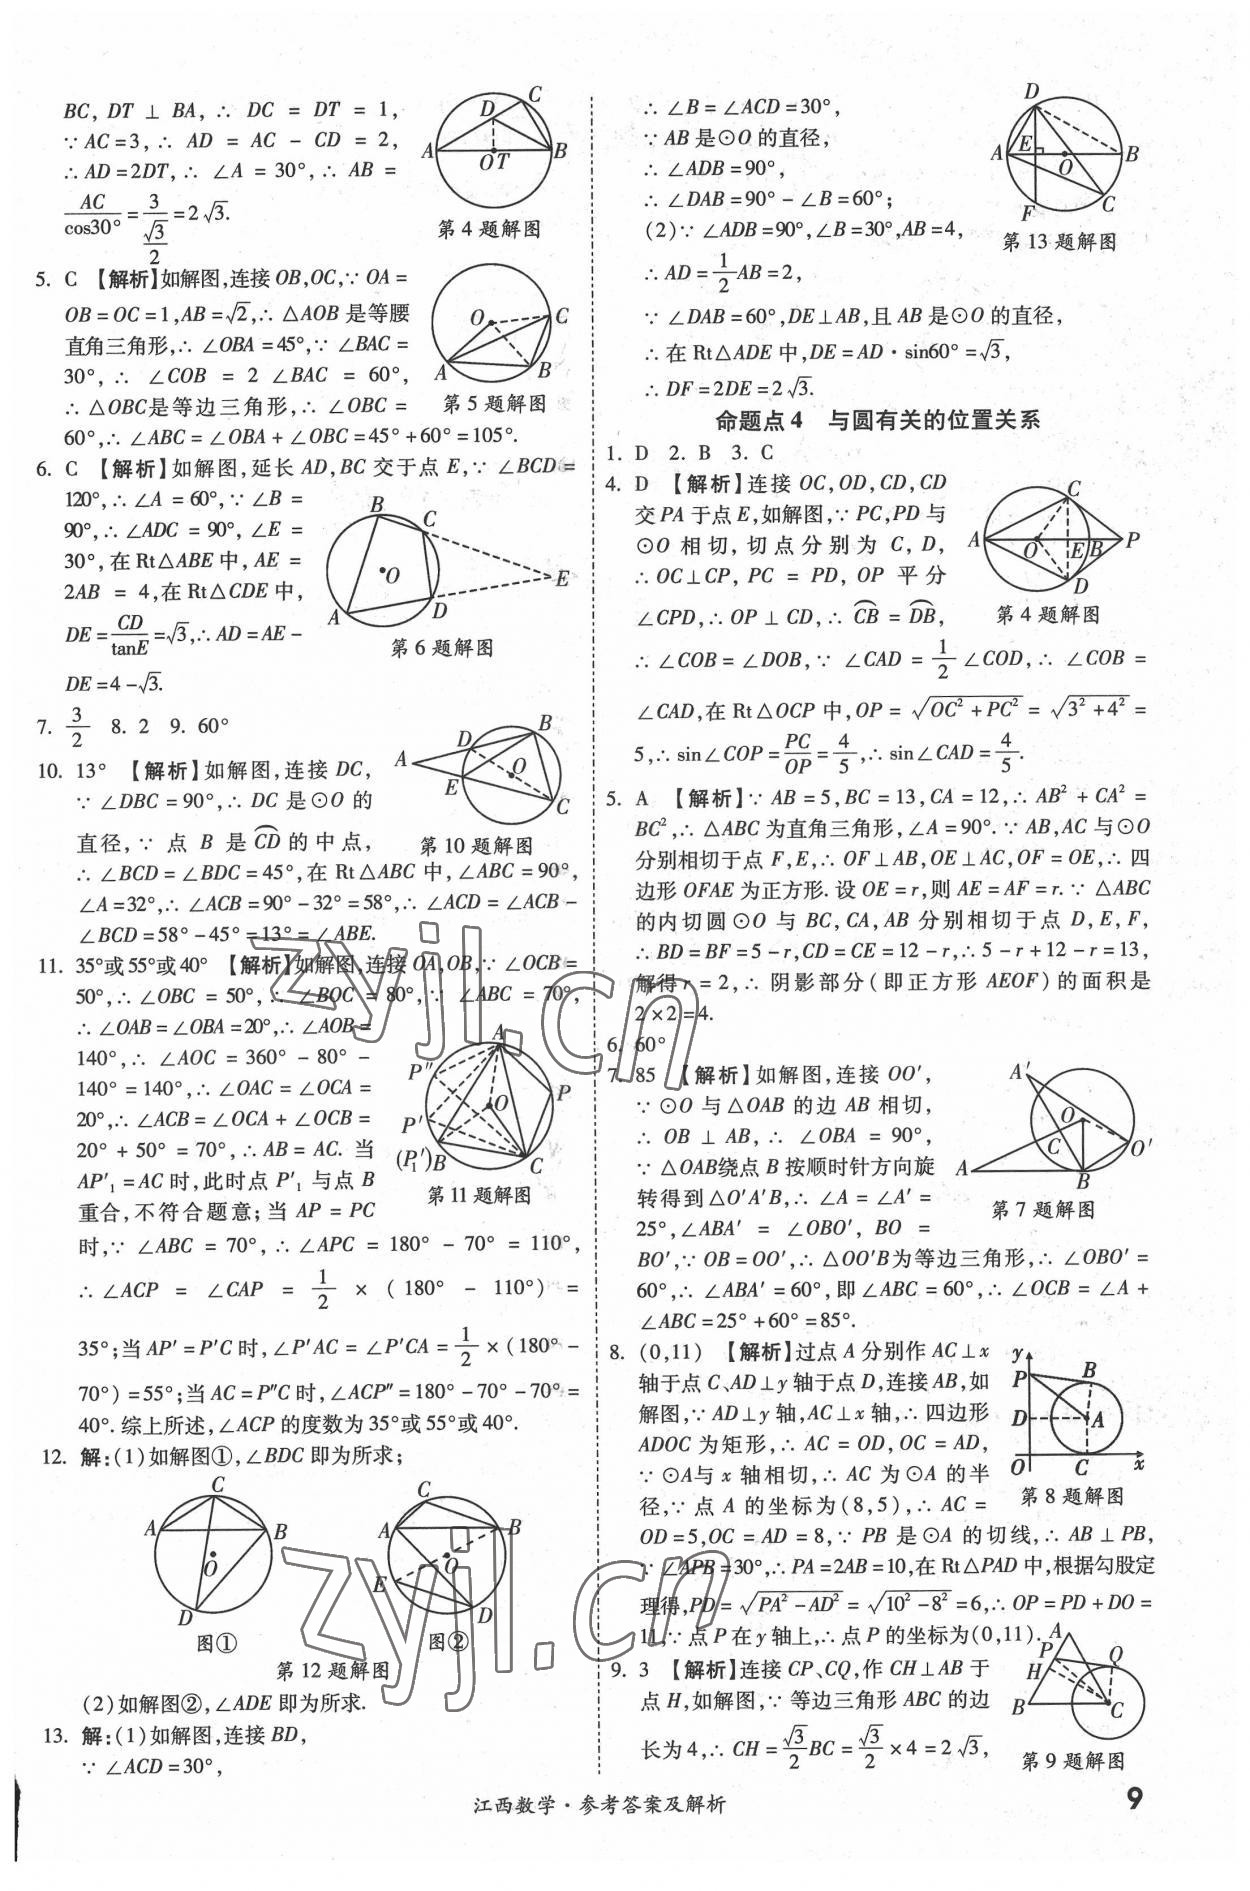 BC, DT ⊥ BA, ∴ DC = DT = 1,
∵ AC=3, ∴ AD = AC - CD = 2,
∴ AD=2DT, ∴ ∠A = 30°, ∴ AB =
AC/cos30° = 3/(√3/2) = 2√3.
第4题解图
5. C 【解析】如解图,连接OB,OC,∵ OA=
OB=OC=1,AB=√2,∴ △AOB是等腰
直角三角形,∴ ∠OBA=45°,∵ ∠BAC=
30°, ∴ ∠COB = 2∠BAC = 60°,
∴ △OBC是等边三角形,∴ ∠OBC=
60°,∴ ∠ABC=∠OBA+∠OBC=45°+60°=105°.
第5题解图
6. C 【解析】如解图,延长AD,BC交于点E,∵ ∠BCD=
120°,∴ ∠A=60°,∵ ∠B=
90°,∴ ∠ADC=90°,∠E=
30°,在Rt△ABE中,AE=
2AB=4,在Rt△CDE中,
DE=CD/tanE=√3,∴ AD=AE-
DE=4-√3.
第6题解图
7. 3/2 8. 2 9. 60°
10. 13° 【解析】如解图,连接DC,
∵ ∠DBC=90°,∴ DC是⊙O的
直径,∵ 点B是⌒CD的中点,
∴ ∠BCD=∠BDC=45°,在Rt△ABC中,∠ABC=90°,
∠A=32°,∴ ∠ACB=90°-32°=58°,∴ ∠ACD=∠ACB-
∠BCD=58°-45°=13°=∠ABE.
第10题解图
11. 35°或55°或40° 【解析】如解图,连接OA,OB,∵ ∠OCB=
50°,∴ ∠OBC=50°,∴ ∠BOC=80°,∵ ∠ABC=70°,
∴ ∠OAB=∠OBA=20°,∴ ∠AOB=
140°,∴ ∠AOC=360°-80°-
140°=140°,∴ ∠OAC=∠OCA=
20°,∴ ∠ACB=∠OCA+∠OCB=
20°+50°=70°,∴ AB=AC. 当
AP′₁=AC时,此时点P′₁与点B
重合,不符合题意;当AP=PC
时,∵ ∠ABC=70°,∴ ∠APC=180°-70°=110°,
∴ ∠ACP = ∠CAP = 1/2 × (180° - 110°) =
35°;当AP′=P′C时,∠P′AC=∠P′CA=1/2×(180°-
70°)=55°;当AC=P″C时,∠ACP″=180°-70°-70°=
40°.综上所述,∠ACP的度数为35°或55°或40°.
第11题解图
12. 解:(1)如解图①,∠BDC即为所求;
图① 图②
第12题解图
(2)如解图②,∠ADE即为所求.
13. 解:(1)如解图,连接BD,
∵ ∠ACD=30°,
∴ ∠B=∠ACD=30°,
∵ AB是⊙O的直径,
∴ ∠ADB=90°,
∴ ∠DAB=90°-∠B=60°;
(2)∵ ∠ADB=90°,∠B=30°,AB=4,
∴ AD=1/2AB=2,
∵ ∠DAB=60°,DE⊥AB,且AB是⊙O的直径,
∴ 在Rt△ADE中,DE=AD·sin60°=√3,
∴ DF=2DE=2√3.
第13题解图
命题点4 与圆有关的位置关系
1. D 2. B 3. C
4. D 【解析】连接OC,OD,CD,CD
交PA于点E,如解图,∵ PC,PD与
⊙O相切,切点分别为C,D,
∴ OC⊥CP, PC = PD, OP平分
∠CPD,∴ OP⊥CD,∴ ⌒CB=⌒DB,
∴ ∠COB=∠DOB,∵ ∠CAD=1/2∠COD,∴ ∠COB=
∠CAD,在Rt△OCP中,OP=√(OC²+PC²)=√(3²+4²)=
5,∴ sin∠COP=PC/OP=4/5,∴ sin∠CAD=4/5.
第4题解图
5. A 【解析】∵ AB=5,BC=13,CA=12,∴ AB²+CA²=
BC²,∴ △ABC为直角三角形,∠A=90°.∵ AB,AC与⊙O
分别相切于点F,E,∴ OF⊥AB,OE⊥AC,OF=OE,∴ 四
边形OFAE为正方形.设OE=r,则AE=AF=r.∵ △ABC
的内切圆⊙O与BC,CA,AB分别相切于点D,E,F,
∴ BD=BF=5-r,CD=CE=12-r,∴ 5-r+12-r=13,
解得r=2,∴ 阴影部分(即正方形AEOF)的面积是
2×2=4.
6. 60°
7. 85 【解析】如解图,连接OO′,
∵ ⊙O与△OAB的边AB相切,
∴ OB⊥AB,∴ ∠OBA=90°,
∵ △OAB绕点B按顺时针方向旋
转得到△O′A′B,∴ ∠A=∠A′=
25°,∠ABA′ = ∠OBO′, BO =
BO′,∵ OB=OO′,∴ △OO′B为等边三角形,∴ ∠OBO′=
60°,∴ ∠ABA′=60°,即∠ABC=60°,∴ ∠OCB=∠A+
∠ABC=25°+60°=85°.
第7题解图
8. (0,11) 【解析】过点A分别作AC⊥x
轴于点C、AD⊥y轴于点D,连接AB,如
解图,∵ AD⊥y轴,AC⊥x轴,∴ 四边形
ADOC为矩形,∴ AC=OD,OC=AD,
∵ ⊙A与x轴相切,∴ AC为⊙A的半
径,∵ 点A的坐标为(8,5),∴ AC=
OD=5,OC=AD=8,∵ PB是⊙A的切线,∴ AB⊥PB,
∵ ∠APB=30°,∴ PA=2AB=10,在Rt△PAD中,根据勾股定
理得,PD=√(PA²-AD²)=√(10²-8²)=6,∴ OP=PD+DO=
11,∵ 点P在y轴上,∴ 点P的坐标为(0,11).
第8题解图
9. 3 【解析】连接CP、CQ,作CH⊥AB于
点H,如解图,∵ 等边三角形ABC的边
长为4,∴ CH=√3/2BC=√3/2×4=2√3,
第9题解图
江西数学·参考答案及解析
9
zyjl.cn
zyjl.cn